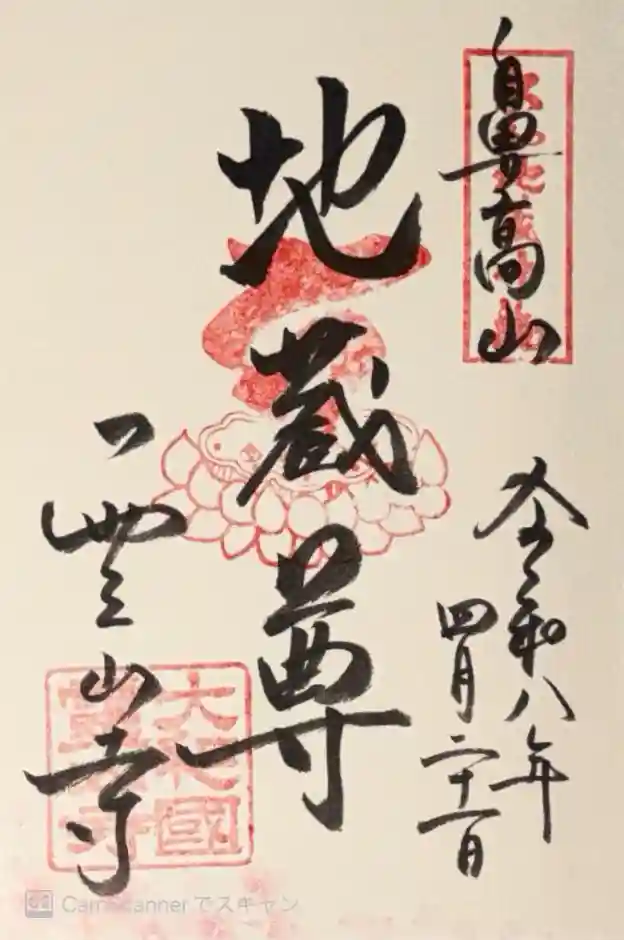 鼻高山
令和八年
四月二十一日
地蔵尊
霊山寺
大和國
霊山寺
CamScanner でスキャン